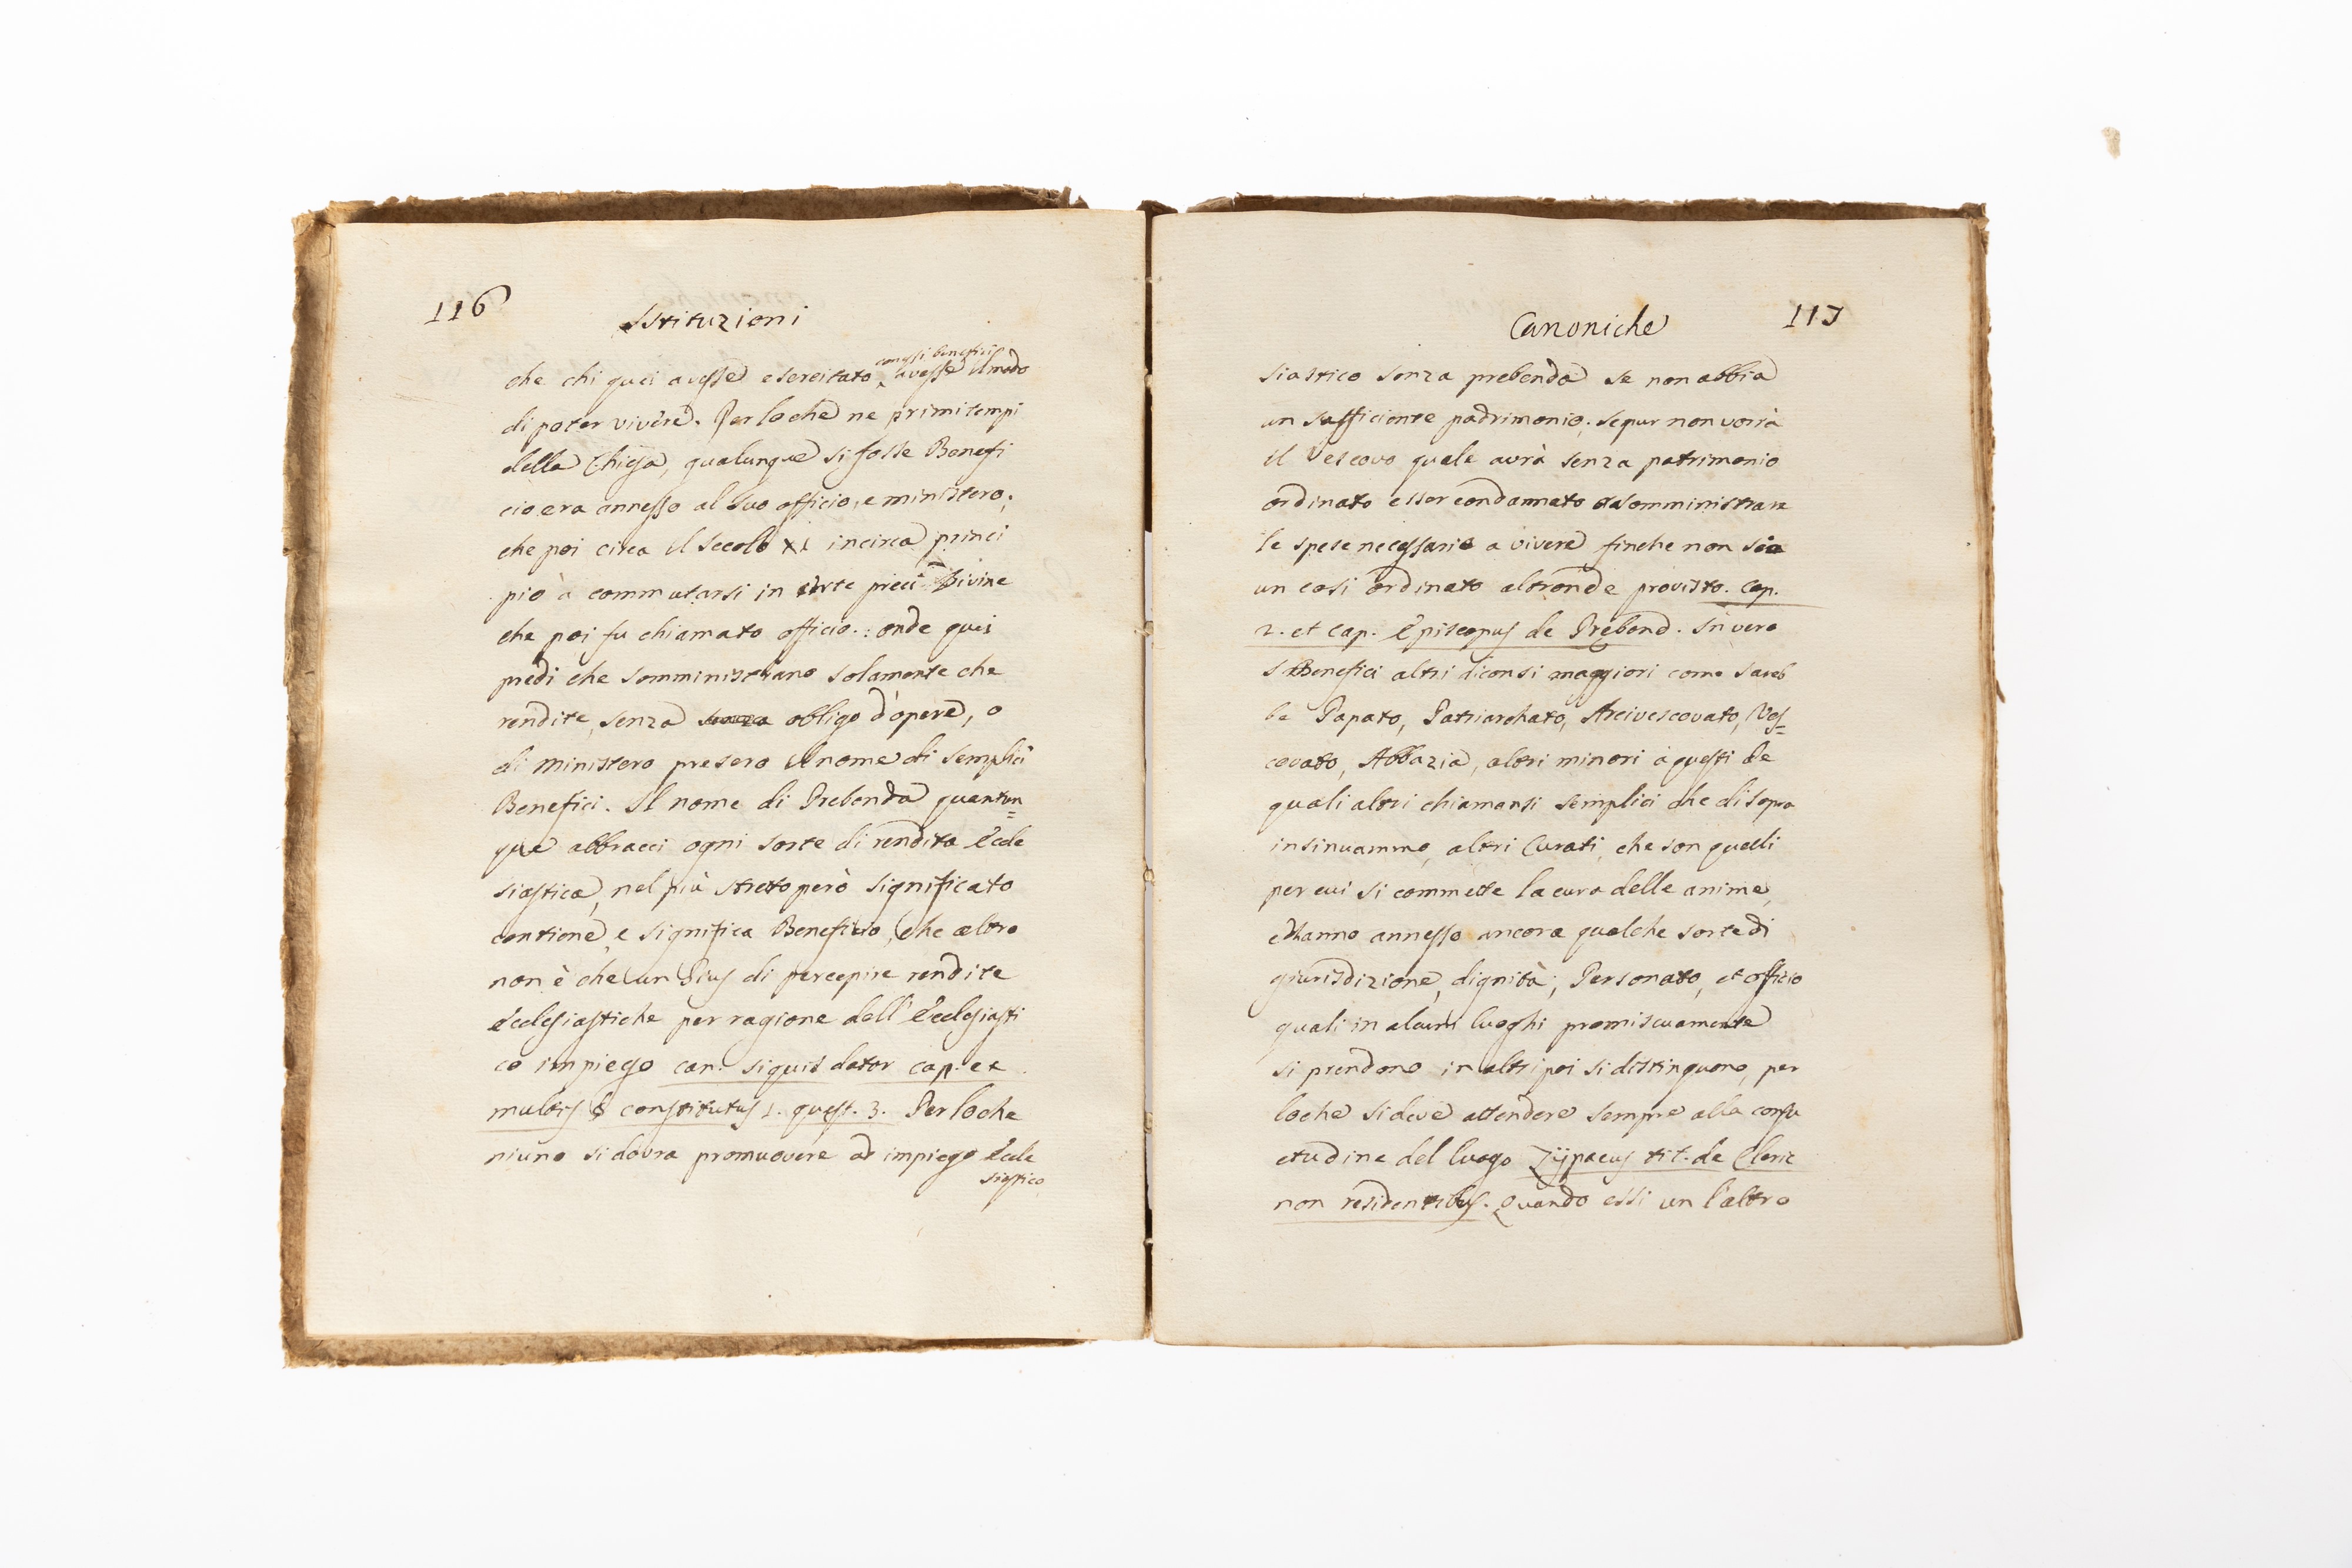 116
Istituzioni
che chi quei avesse esercitato, con essi benefici avesse il modo
di poter vivere. Perloche ne primi tempi
della Chiesa, qualunque si fosse Benefi
cio era annesso al suo officio, e ministero;
che poi circa il secolo XI incirca princi
piò à commutarsi in certe preci Divine
che poi fu chiamato officio: onde quei
predi che somministrano solamente che
rendite, senza obligo d'opere, o
di ministero presero il nome di semplici
Benefici. Il nome di Prebenda quantun=
que abbracci ogni sorte di rendita Eccle
siastica, nel più stretto però significato
contiene, e significa Beneficio, che altro
non è che un Gius di percepire rendite
Ecclesiastiche per ragione dell'Ecclesiasti
co impiego can. siquis dator cap. et
multis § constitutus 1. quest. 3. Perloche
niuno si dovra promuovere ad impiego Eccle
siastico
Canoniche
117
siastico senza prebenda se non abbia
un sufficiente padrimonio; sepur non vorrà
il Vescovo quale avrà senza patrimonio
ordinato esser condannato a somministrare
le spese necessarie a vivere finche non sia
un cosi ordinato altronde provisto. Cap.
2. et cap. Episcopus de Prebend. In vero
I Benefici altri diconsi maggiori come sareb
be Papato, Patriarchato, Arcivescovato, Ves=
covato, Abbazia, altri minori à questi de
quali altri chiamansi semplici che di sopra
insinuammo, altri Curati, che son quelli
per cui si commette la cura delle anime,
ed hanno annesso ancora qualche sorte di
giurisdizione, dignità, Personato, et officio
quali in alcuni luoghi promiscuamente
si prendono in altri poi si distinguono, per
loche si deve attendere sempre alla consu
etudine del luogo Zijpaeus tit. de Cleric
non residentibus. Quando essi un l'altro